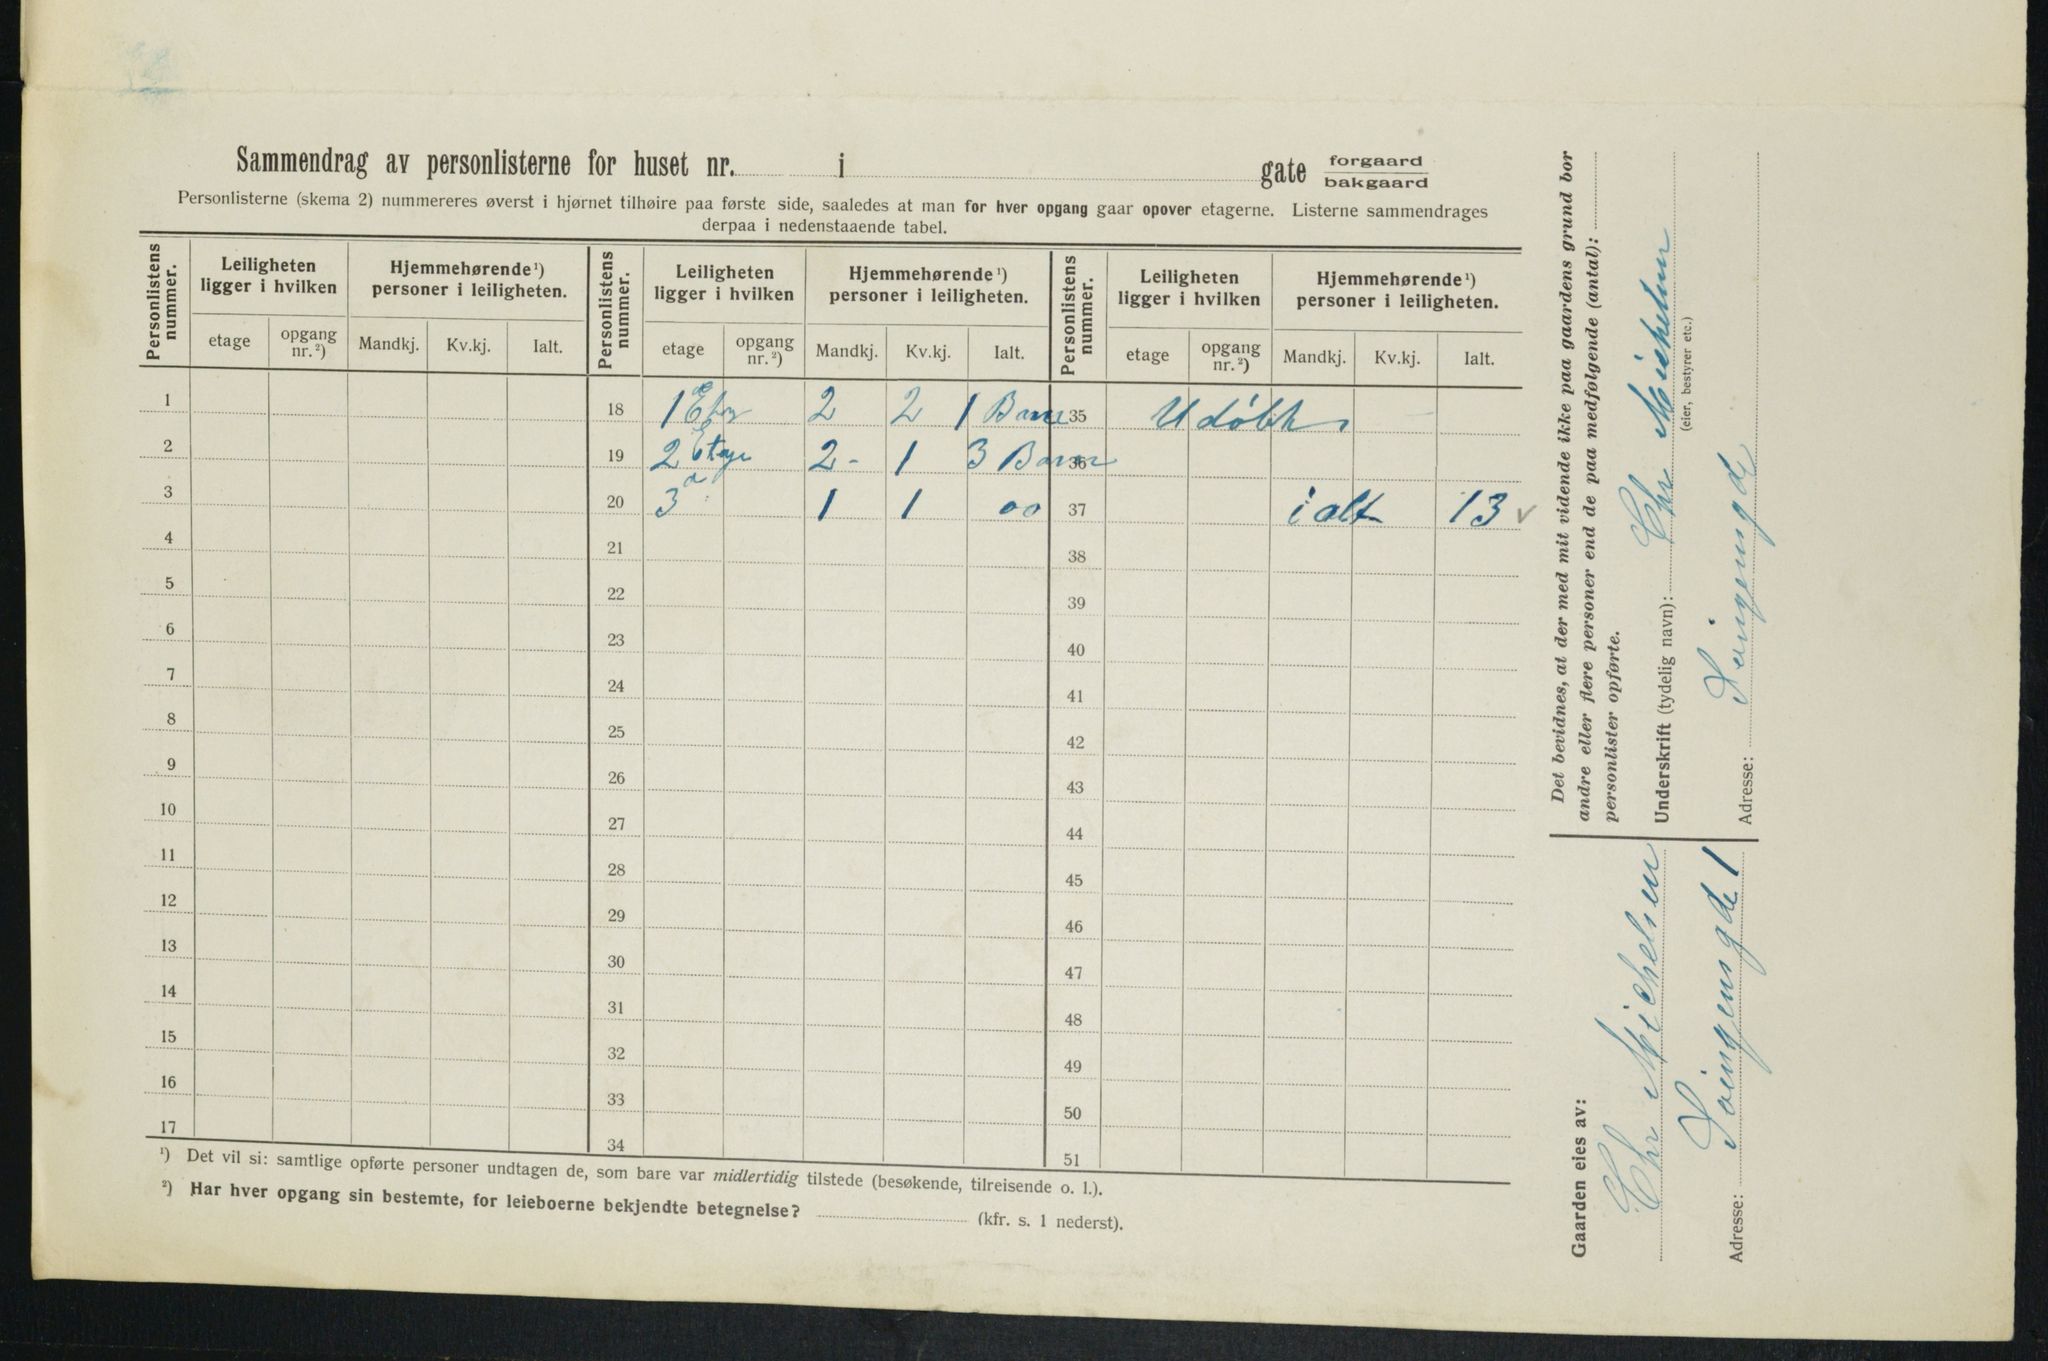 Sammendrag av personlisterne for huset nr. i gate forgaard bakgaard
Personlisterne (skema 2) nummereres øverst i hjørnet tilhøire paa første side, saaledes at man for hver opgang gaar opover etagerne. Listerne sammendrages
derpaa i nedenstaaende tabel.
Personlistens nummer. Leiligheten ligger i hvilken Hjemmehørende¹) personer i leiligheten. Personlistens nummer. Leiligheten ligger i hvilken Hjemmehørende¹) personer i leiligheten. Personlistens nummer. Leiligheten ligger i hvilken Hjemmehørende¹) personer i leiligheten.
etage opgang nr.²) Mandkj. Kv.kj. Ialt. etage opgang nr.²) Mandkj. Kv.kj. Ialt. etage opgang nr.²) Mandkj. Kv.kj. Ialt.
1 18 1 2 2 1 35
2 19 2 Etage 2 - 1 3 Barn 36
3 20 3 1 1 00 37 i alt 13
4 21 38
5 22 39
6 23 40
7 24 41
8 25 42
9 26 43
10 27 44
11 28 45
12 29 46
13 30 47
14 31 48
15 32 49
16 33 50
17 34 51
¹) Det vil si: samtlige opførte personer undtagen de, som bare var midlertidig tilstede (besøkende, tilreisende o. l.).
²) Har hver opgang sin bestemte, for leieboerne bekjendte betegnelse? (kfr. s. 1 nederst).
Det bevidnes, at der med mit vidende ikke paa gaardens grund bor
andre eller flere personer end de paa medfølgende (antal):
personlister opførte.
Underskrift (tydelig navn): Chr Michelsen
(eier, bestyrer etc.)
Adresse:
Gaarden eies av:
Chr Michelsen
Adresse: 1